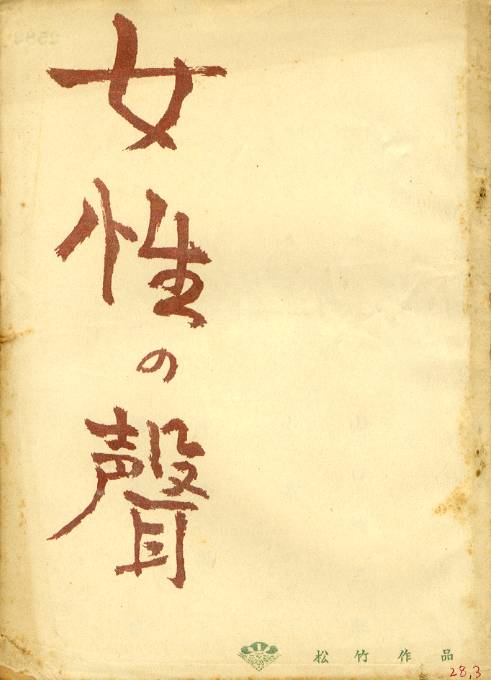 女性の聲
松竹作品
28.3